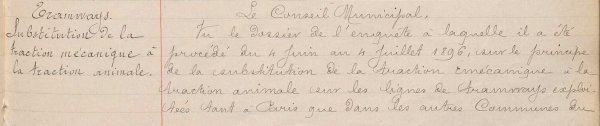 Tramways.
Substitution de la
traction mécanique à
la traction animale.
Le Conseil Municipal,
Vu le Dossier de l'enquête à laquelle il a été
procédé du 4 Juin au 4 Juillet 1896, sur le principe
de la substitution de la traction mécanique à la
traction animale sur les lignes de tramways exploi-
tées tant à Paris que dans les autres Communes du